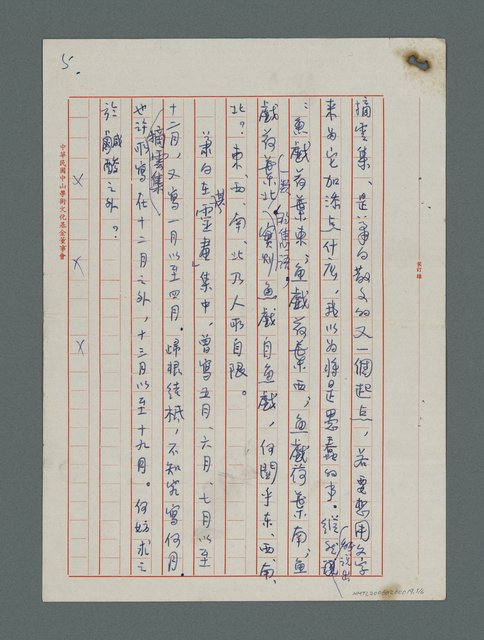 5.
摘雲集、是蕭白散文的又一個起点，若要想用文字
來為它加添点什広，我以為將是愚蠢的事。縱然能說出
：魚戲荷葉東、魚戲荷葉西，魚戲荷葉南，魚
戲荷葉北，實則魚戲自魚戲，何関乎东、西、南、
北？東、西、南、北乃人所自限。
蕭白在「靈畫」集中，曾寫五月、六月、七月以至
十二月，又寫一月以至四月。
不知究寫何月。
摘雲集
也許所寫在十二月之外，十三月以至十九月。何妨求之
於鹹酸之外？
中華民國中山學術文化基金董事會
裝訂線
NMTL20050200019.5/6